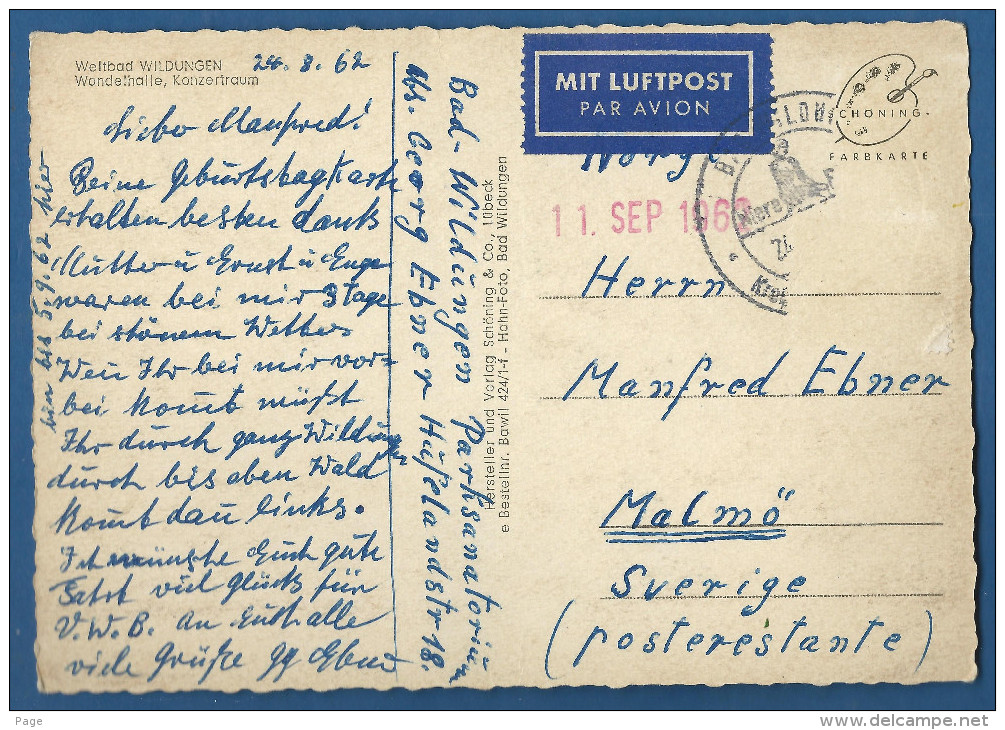 Weltbad WILDUNGEN
Wandelhalle, Konzertraum
24. 8. 62
Lieber Manfred!
Deine Geburtstagskarte
erhalten besten Dank
Mutter u Ernst u Inge
waren bei mir 3 Tage
bei schönem Wetter
Wen Ihr bei mir vor-
bei komt müßt
Ihr durch ganz Wildungen
durch bis oben Wald
komt dan links.
Ich wünsche Euch gute
Fahrt viel Glück für
V.W.B. an Euch alle
viele Grüße Gg Ebner
bin bis 5.9.62 hier
Bad-Wildungen Parksanatoriüm
Georg Ebner Hüfelandstr 18.
Hersteller und Verlag Schöning & Co., Lübeck
e Bestellnr. Bawil 424/1-f - Hahn-Foto, Bad Wildungen
MIT LUFTPOST
PAR AVION
SCHÖNING-
FARBKARTE
Norg
11. SEP 196
Herrn
Manfred Ebner
Malmö
Sverige
(posterestante)
Page
www.delcampe.net